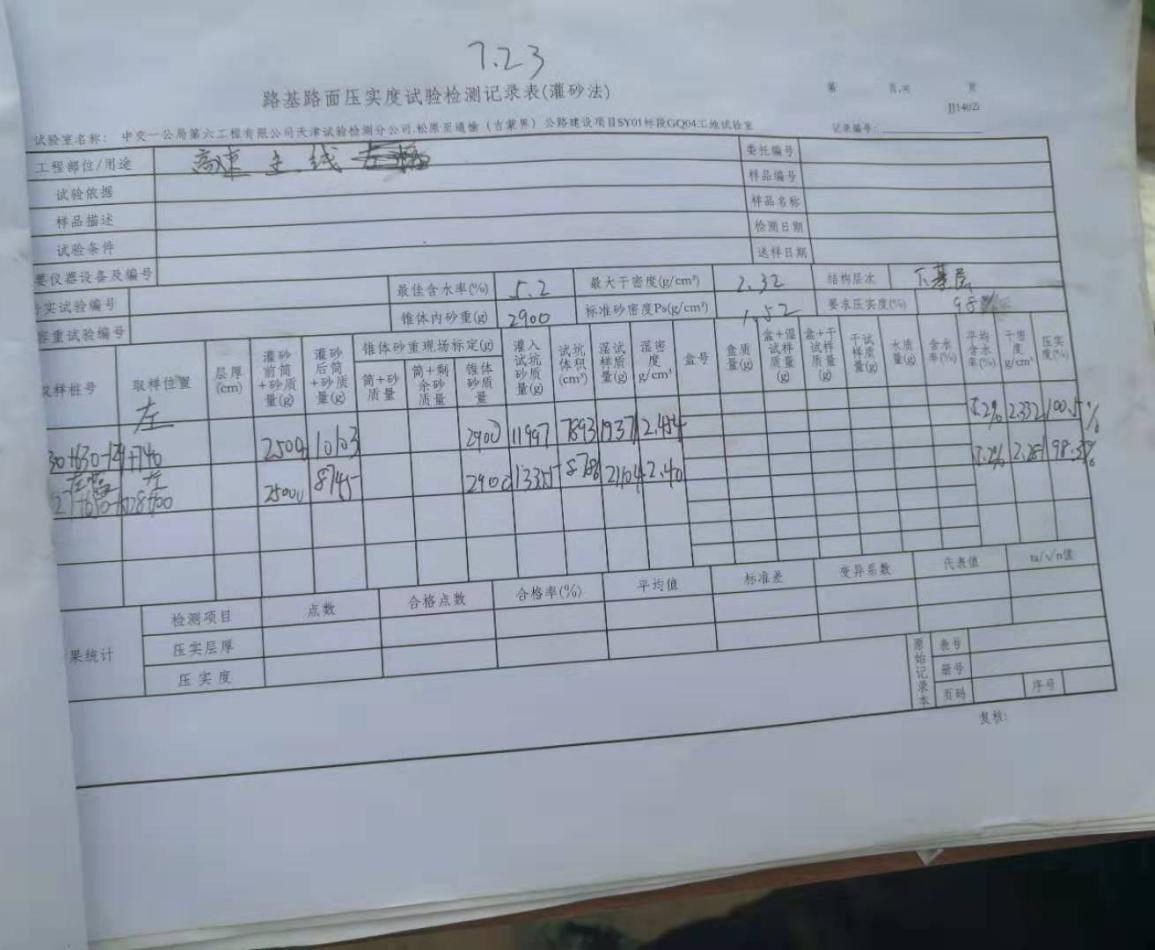 7.23
路基路面压实度试验检测记录表(灌砂法)
第 页,共 页
JJ1402i
试验室名称: 中交一公局第六工程有限公司天津试验检测分公司.松原至通榆(吉蒙界)公路建设项目SY01标段GQ04工地试验室
记录编号:
工程部位/用途 高速主线 委托编号
试验依据 样品编号
样品描述 样品名称
试验条件 检测日期
要仪器设备及编号 送样日期
实试验编号 最佳含水率(%) 5.2 最大干密度(g/cm³) 2.32 结构层次 下基层
容重试验编号 锥体内砂重(g) 2900 标准砂密度Ps(g/cm³) 1.52 要求压实度(%) 98
取样桩号 取样位置 层厚(cm) 灌砂前筒+砂质量(g) 灌砂后筒+砂质量(g) 锥体砂重现场标定(g) 筒+砂质量 筒+剩余砂质量 锥体砂质量 灌入试坑砂质量(g) 试坑体积(cm³) 湿试样质量(g) 湿密度g/cm³ 盒号 盒质量(g) 盒+湿试样质量(g) 盒+干试样质量(g) 干试样质量(g) 水质量(g) 含水率(%) 平均含水率(%) 干密度g/cm³ 压实度(%)
左
+740 25000 10103 2900 11997 7893 19371 2.454 5.2% 2.332 100.5%
左
25000 8745 2900 13355 8786 21104 2.40 2.281 98.3%
果统计 检测项目 点数 合格点数 合格率(%) 平均值 标准差 变异系数 代表值 ta/√n值
压实层厚
压实度
原始记录本 表号
册号
页码 序号
复核: